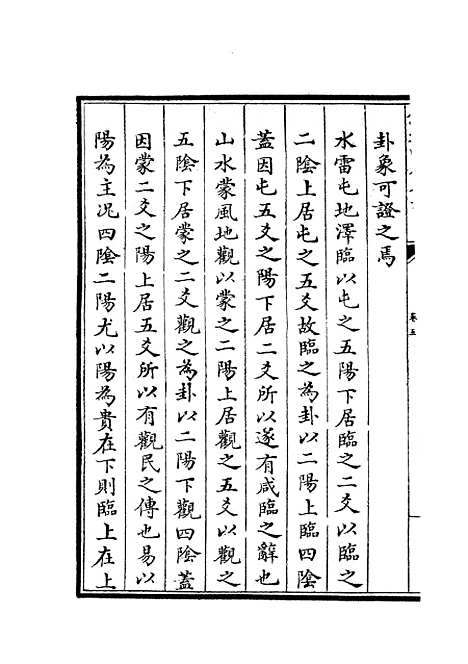 卦象可證之焉
水雷屯地澤臨以屯之五陽下居臨之二爻以臨之
二陰上居屯之五爻故臨之為卦以二陽上臨四陰
蓋因屯五爻之陽下居二爻所以遂有咸臨之辭也
山水蒙風地觀以蒙之二陽上居觀之五爻以觀之
五陰下居蒙之二爻觀之為卦以二陽下觀四陰蓋
因蒙二爻之陽上居五爻所以有觀民之傳也易以
陽為主况四陰二陽尤以陽為貴在下則臨上在上
卷五